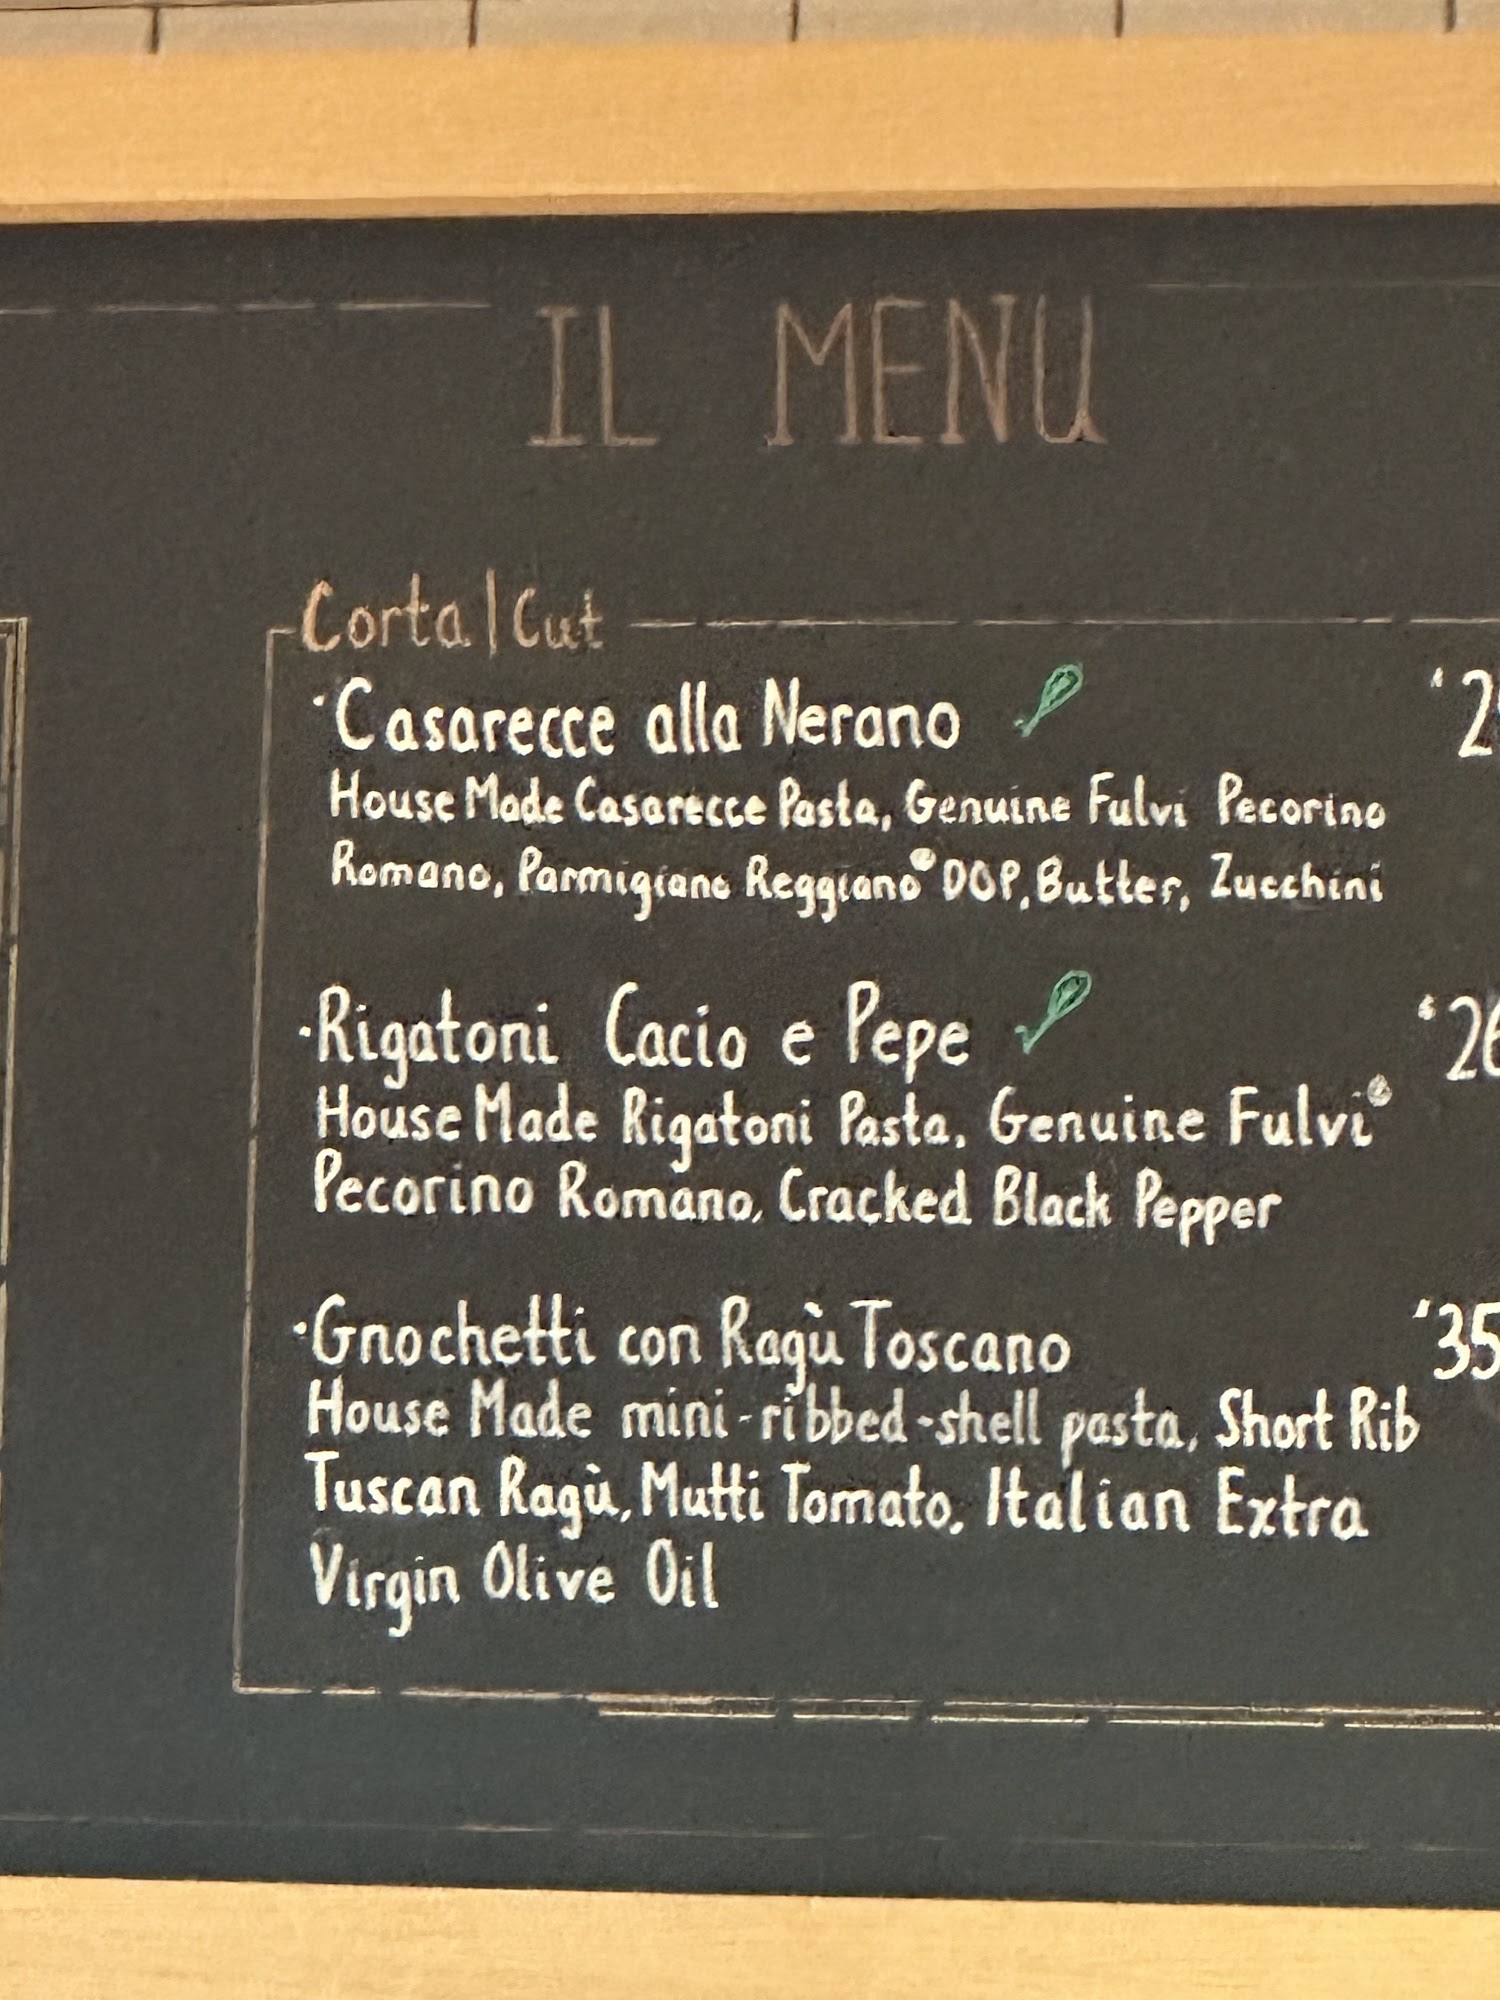 IL MENU
Corta | Cut
·Casarecce alla Nerano
House Made Casarecce Pasta, Genuine Fulvi Pecorino
Romano, Parmigiano Reggiano® DOP, Butter, Zucchini
·Rigatoni Cacio e Pepe
House Made Rigatoni Pasta, Genuine Fulvi®
Pecorino Romano, Cracked Black Pepper
·Gnochetti con Ragù Toscano 35
House Made mini-ribbed-shell pasta, Short Rib
Tuscan Ragù, Mutti Tomato, Italian Extra
Virgin Olive Oil